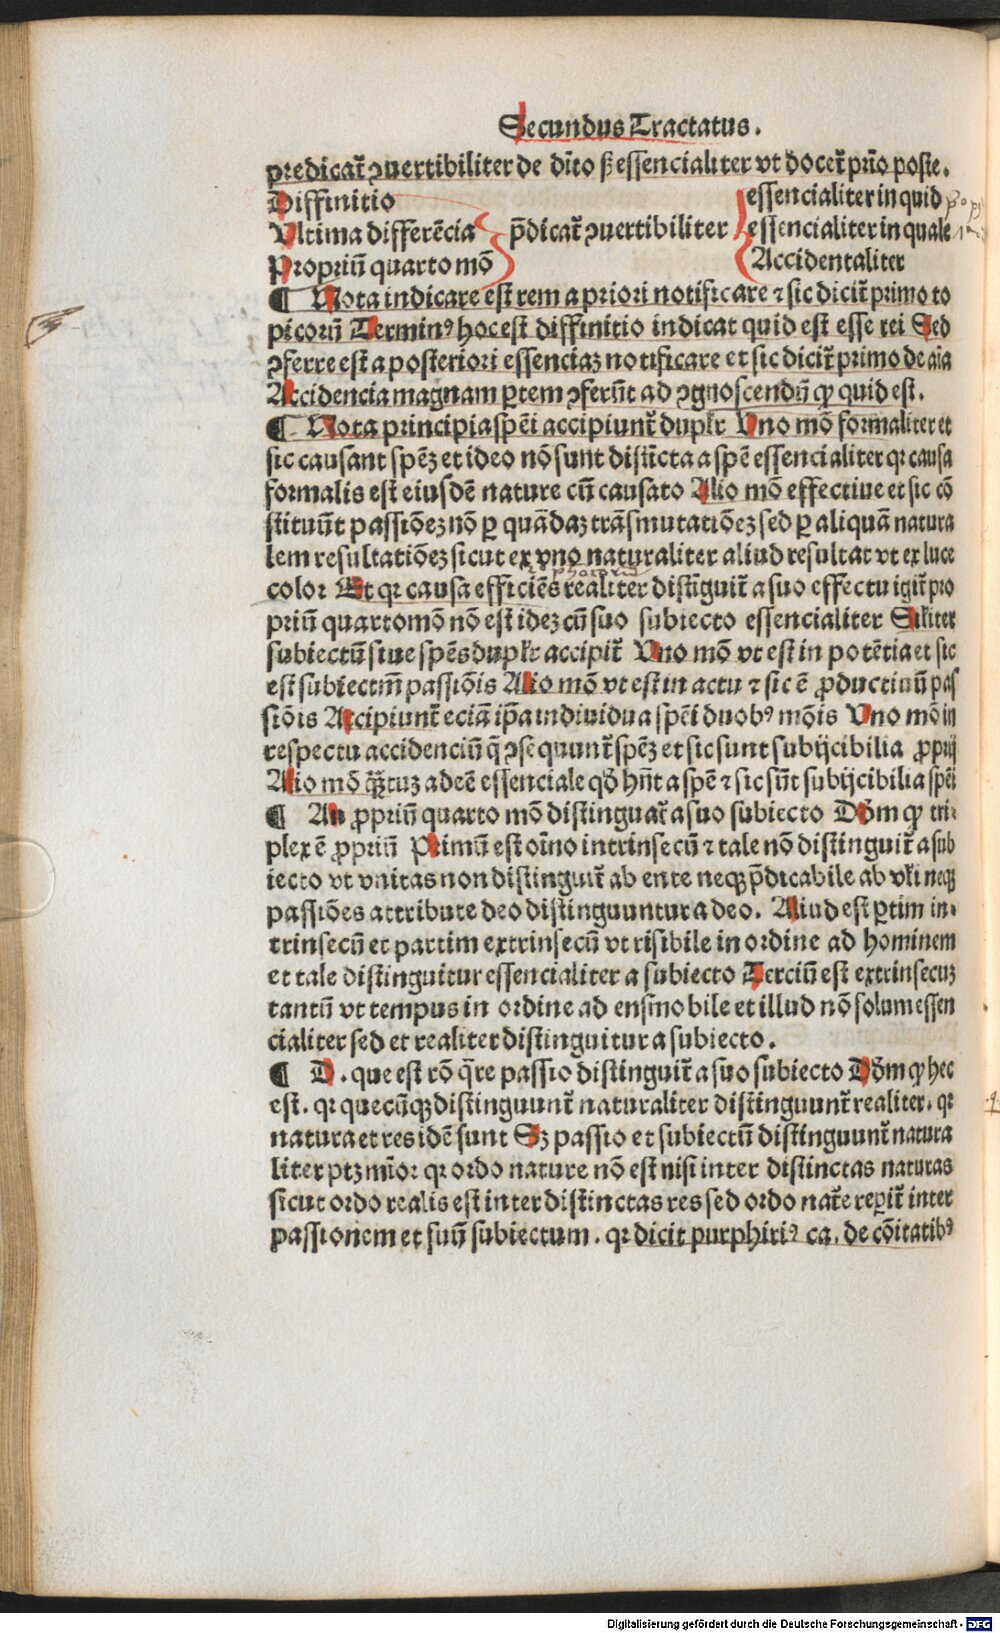 Secundus Tractatus.
predicat᷑ ꝯuertibiliter de dīto sꝫ essencialiter vt docet᷑ pr̄io poste.
Diffinitio
Vltima differēcia
Propriū quarto mō
p̄dicat᷑ ꝯuertibiliter
essencialiter in quid
essencialiter in quale
Accidentaliter
¶ Nota indicare est rem a priori notificare ⁊ sic dicit᷑ primo to
picorū Terminꝰ hoc est diffinitio indicat quid est esse rei Sed
ꝯferre est a posteriori essenciaz notificare et sic dicit᷑ primo de aīa
Accidencia magnam ꝑtem ꝯferūt ad ꝯgnoscendū ꝙ quid est.
¶ Nota principia spēi accipiunt᷑ duplr Vno mō formaliter et
sic causant spēz et ideo nō sunt distīcta a spē essencialiter qꝛ causa
formalis est eiusdē nature cū causato Alio mō effectiue et sic cō
stituūt passiōez nō ꝑ quādaz trāsmutatiōez sed ꝑ aliquā natura
lem resultatiōez sicut ex vno naturaliter aliud resultat vt ex luce
color Et qꝛ causa efficiēs realiter distīguit᷑ a suo effectu igit᷑ pro
priū quarto mō nō est idez cū suo subiecto essencialiter Silꝛiter
subiectū siue spēs duplr accipit᷑ Vno mō vt est in potētia et sic
est subiectm̄ passiōis Alio mō vt est in actu ⁊ sic ē ꝓductiuū pas
siōis Accipiunt᷑ eciā ip̄a indiuidua spēi duobꝰ mōis Vno mō in
respectu accidenciū q̄ ꝯsequunt᷑ spēz et sic sunt subijcibilia ꝓprij
Alio mō q̄ꝫtuz ad eē essenciale qd̄ hn̄t a spē ⁊ sic sūt subijcibilia spēi
¶ An ꝓpriū quarto mō distinguat᷑ a suo subiecto Dōm ꝙ tri-
plex ē ꝓpriū Primū est oīno intrinsecū ⁊ tale nō distinguit᷑ a sub
iecto vt vnitas non distinguit᷑ ab ente neqꝫ p̄dicabile ab vl̄i neqꝫ
passiōes attribute deo distinguuntur a deo. Aliud est ꝑtim in-
trinsecū et partim extrinsecū vt risibile in ordine ad hominem
et tale distinguitur essencialiter a subiecto Terciū est extrinsecuz
tantū vt tempus in ordine ad ens mobile et illud nō solum essen
cialiter sed et realiter distinguitur a subiecto.
¶ D. que est rō q̄re passio distinguit᷑ a suo subiecto Dōm ꝙ hec
est. qꝛ quecūqꝫ distinguunt᷑ naturaliter distinguunt᷑ realiter. qꝛ
natura et res idē sunt Sꝫ passio et subiectū distinguunt᷑ natura
liter ptꝫ mīor qꝛ ordo nature nō est nisi inter distinctas naturas
sicut ordo realis est inter distinctas res sed ordo nat᷑e reꝑit᷑ inter
passionem et suū subiectum. qꝛ dicit purphiriꝰ ca. de cōitatibꝰ
Digitalisierung gefördert durch die Deutsche Forschungsgemeinschaft - DFG